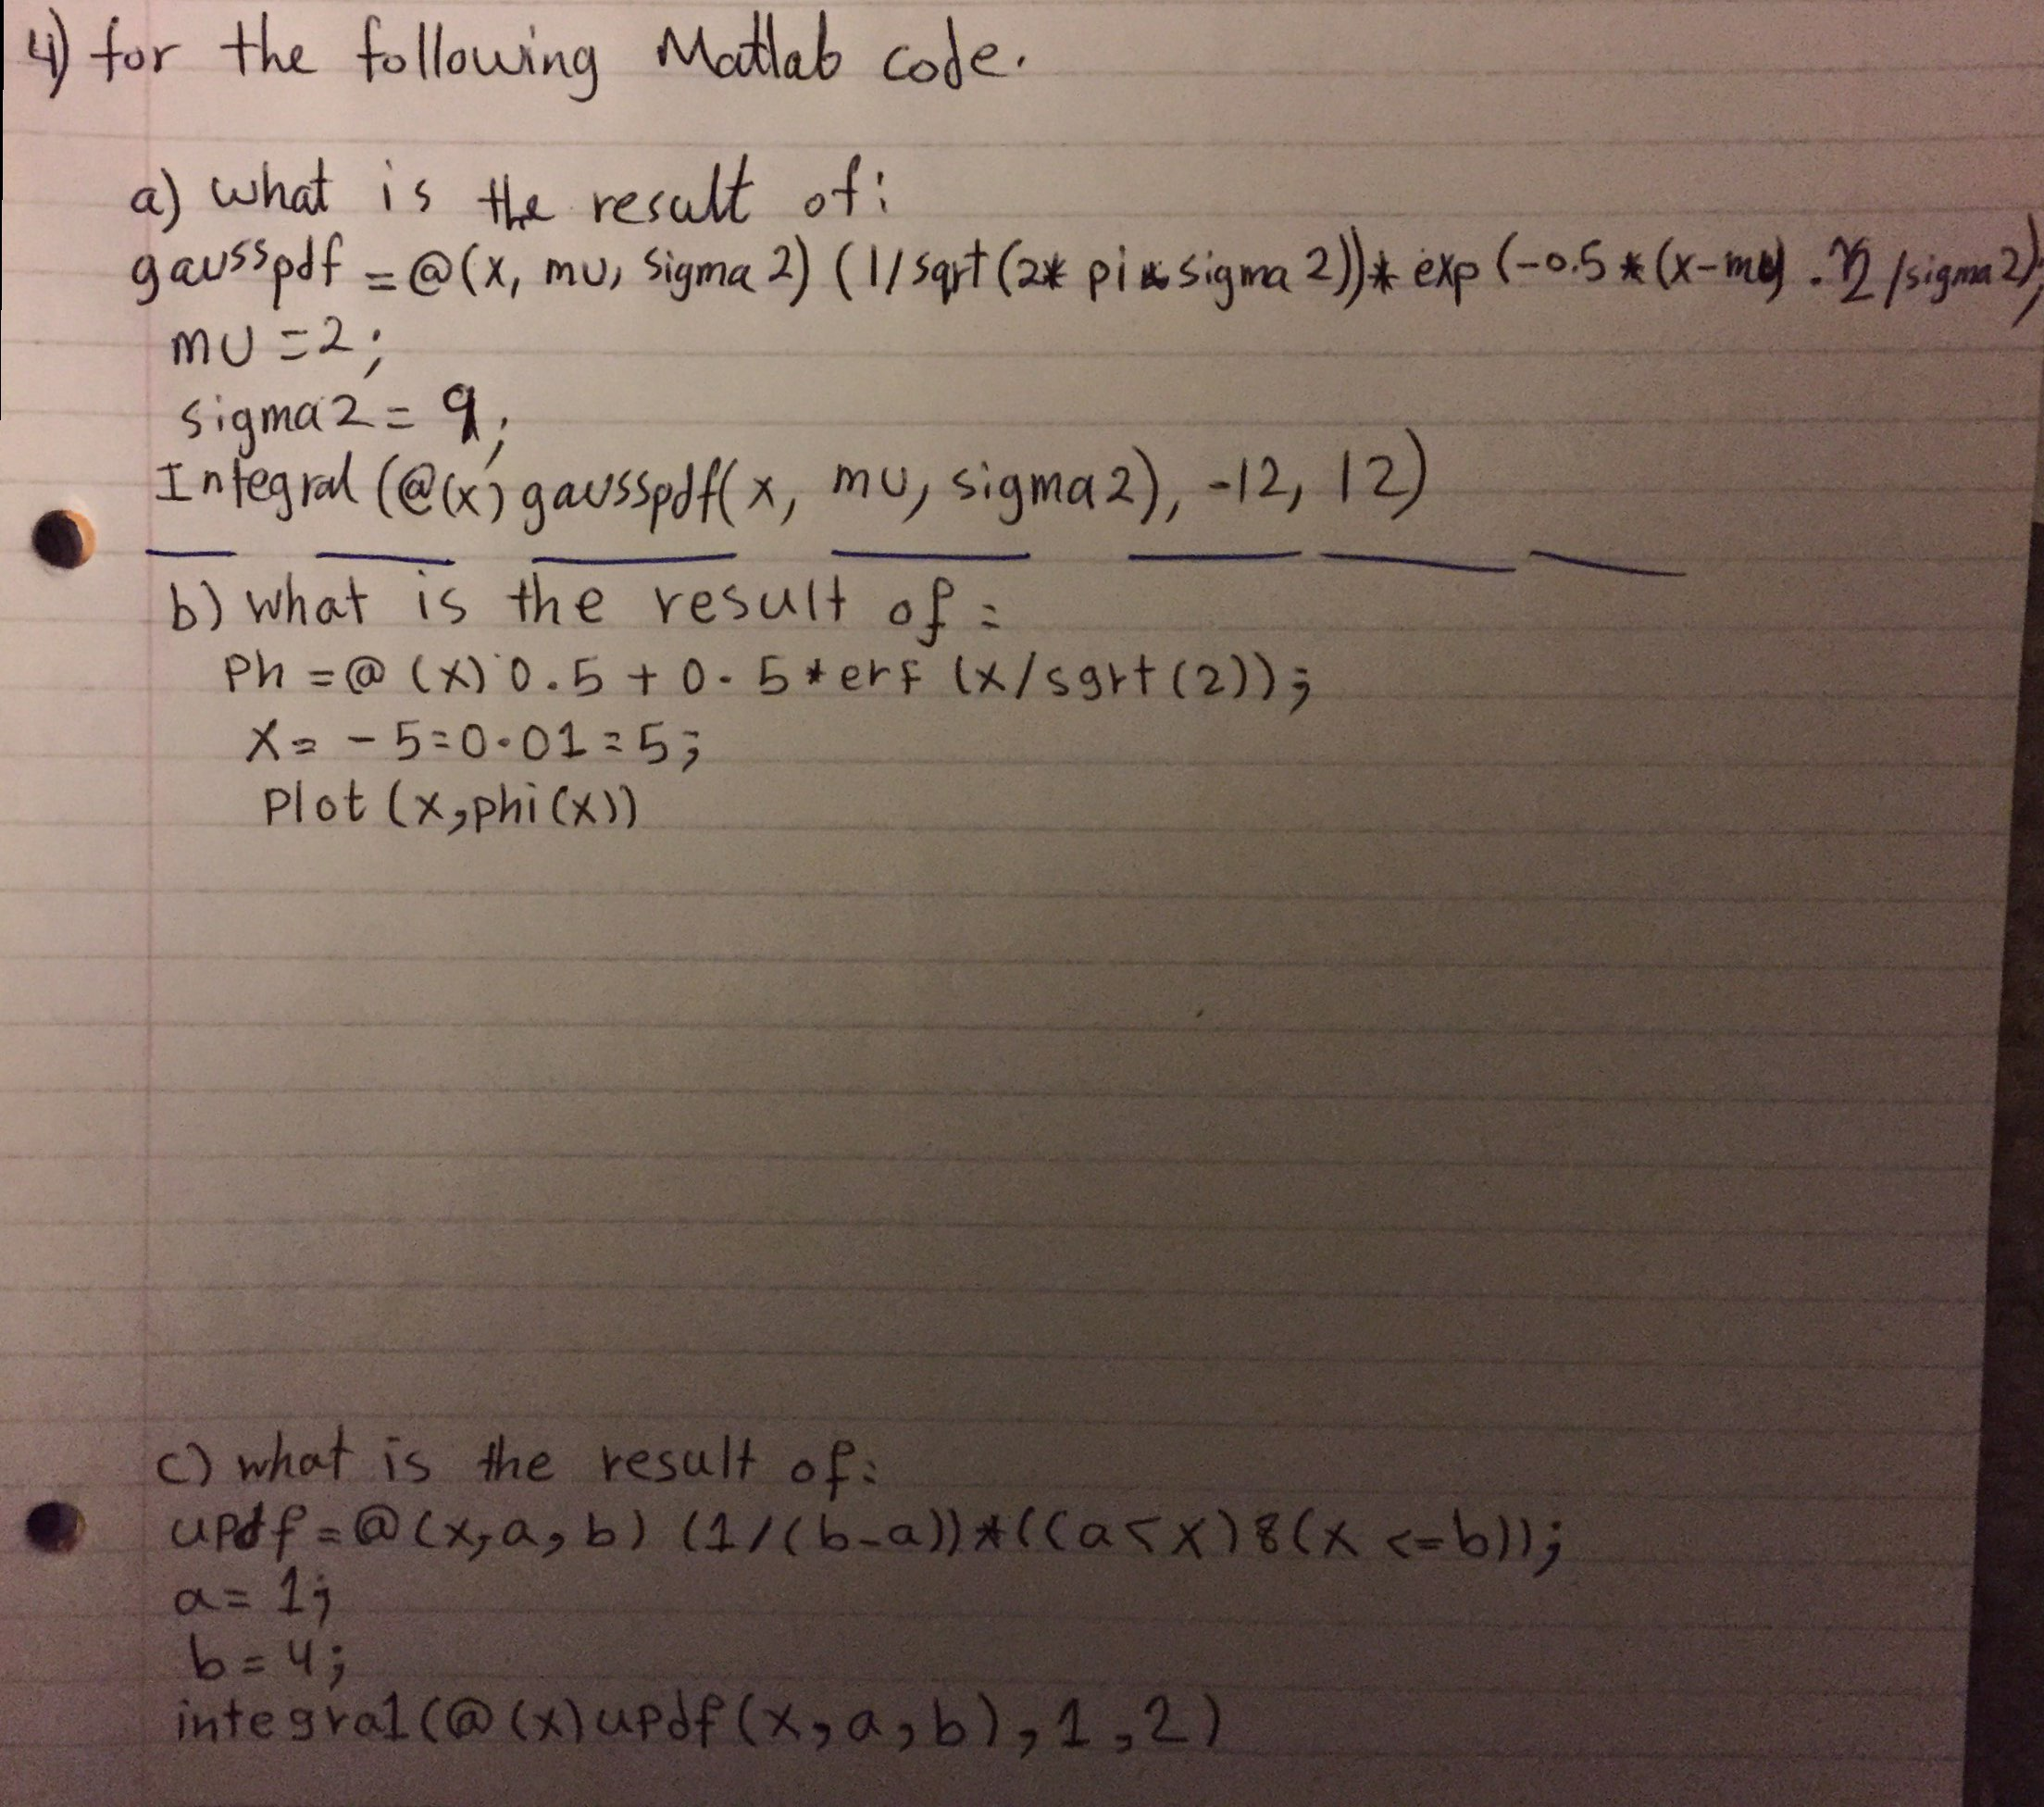 4) for the following Matlab code.
a) what is the result of:
gausspdf = @(x, mu, sigma2) (1/sqrt(2* pi * sigma 2))* exp (-0.5 * (x-mu) .^2 /sigma2);
mu = 2;
sigma2 = 9;
Integral (@(x) gausspdf( x, mu, sigma2), -12, 12)
b) what is the result of :
Ph = @ (x) 0.5 + 0.5*erf (x/sqrt(2));
X = -5:0.01:5;
Plot (x,phi(x))
c) what is the result of:
updf = @ (x,a,b) (1/(b-a))*((a<x)&(x <=b));
a= 1;
b = 4;
integral(@(x)updf(x,a,b),1,2)